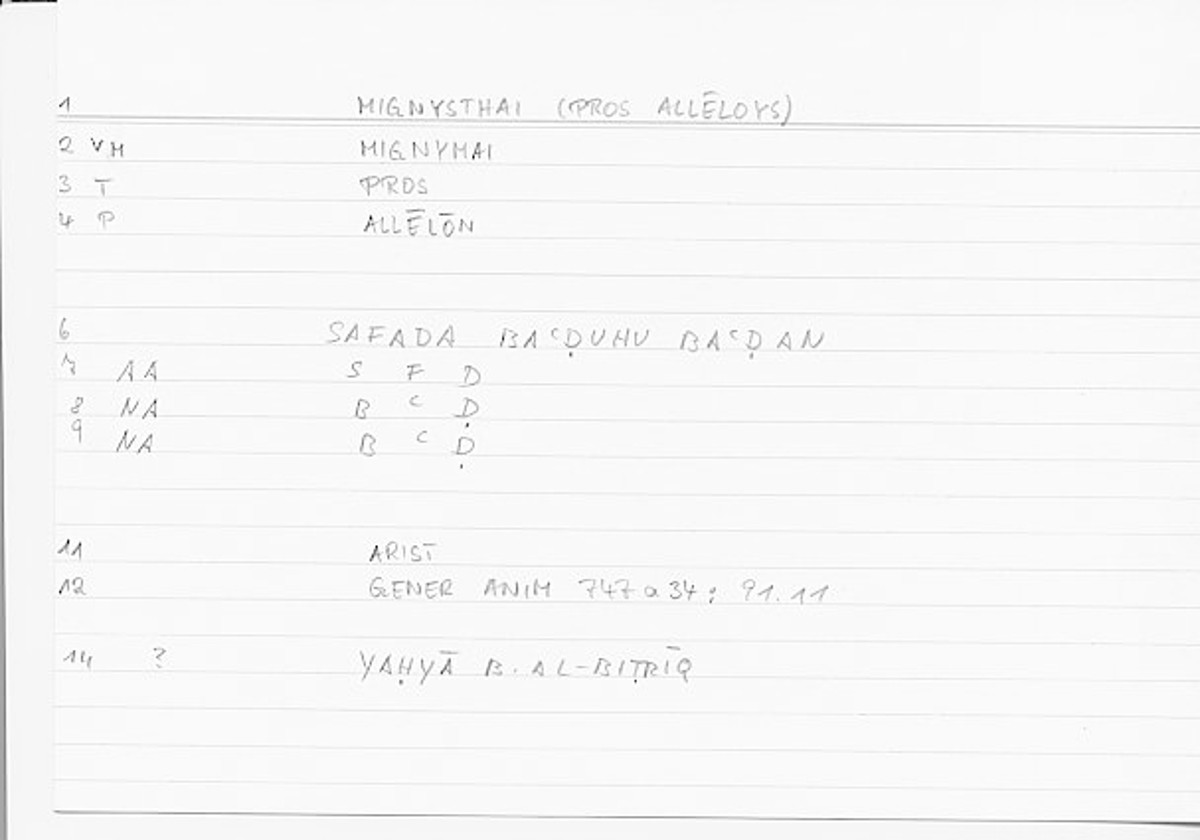 1 MIGNYSTHAI (PROS ALLĒLOYS)
2 VM MIGNYMAI
3 T PROS
4 P ALLĒLŌN
6 SAFADA BAʿḌUHU BAʿḌAN
7 AA S F D
8 NA B ʿ Ḍ
9 NA B ʿ Ḍ
11 ARIST
12 GENER ANIM 747 a 34 ; 91.11
14 ? YAḤYĀ B. AL-BIṬRĪQ